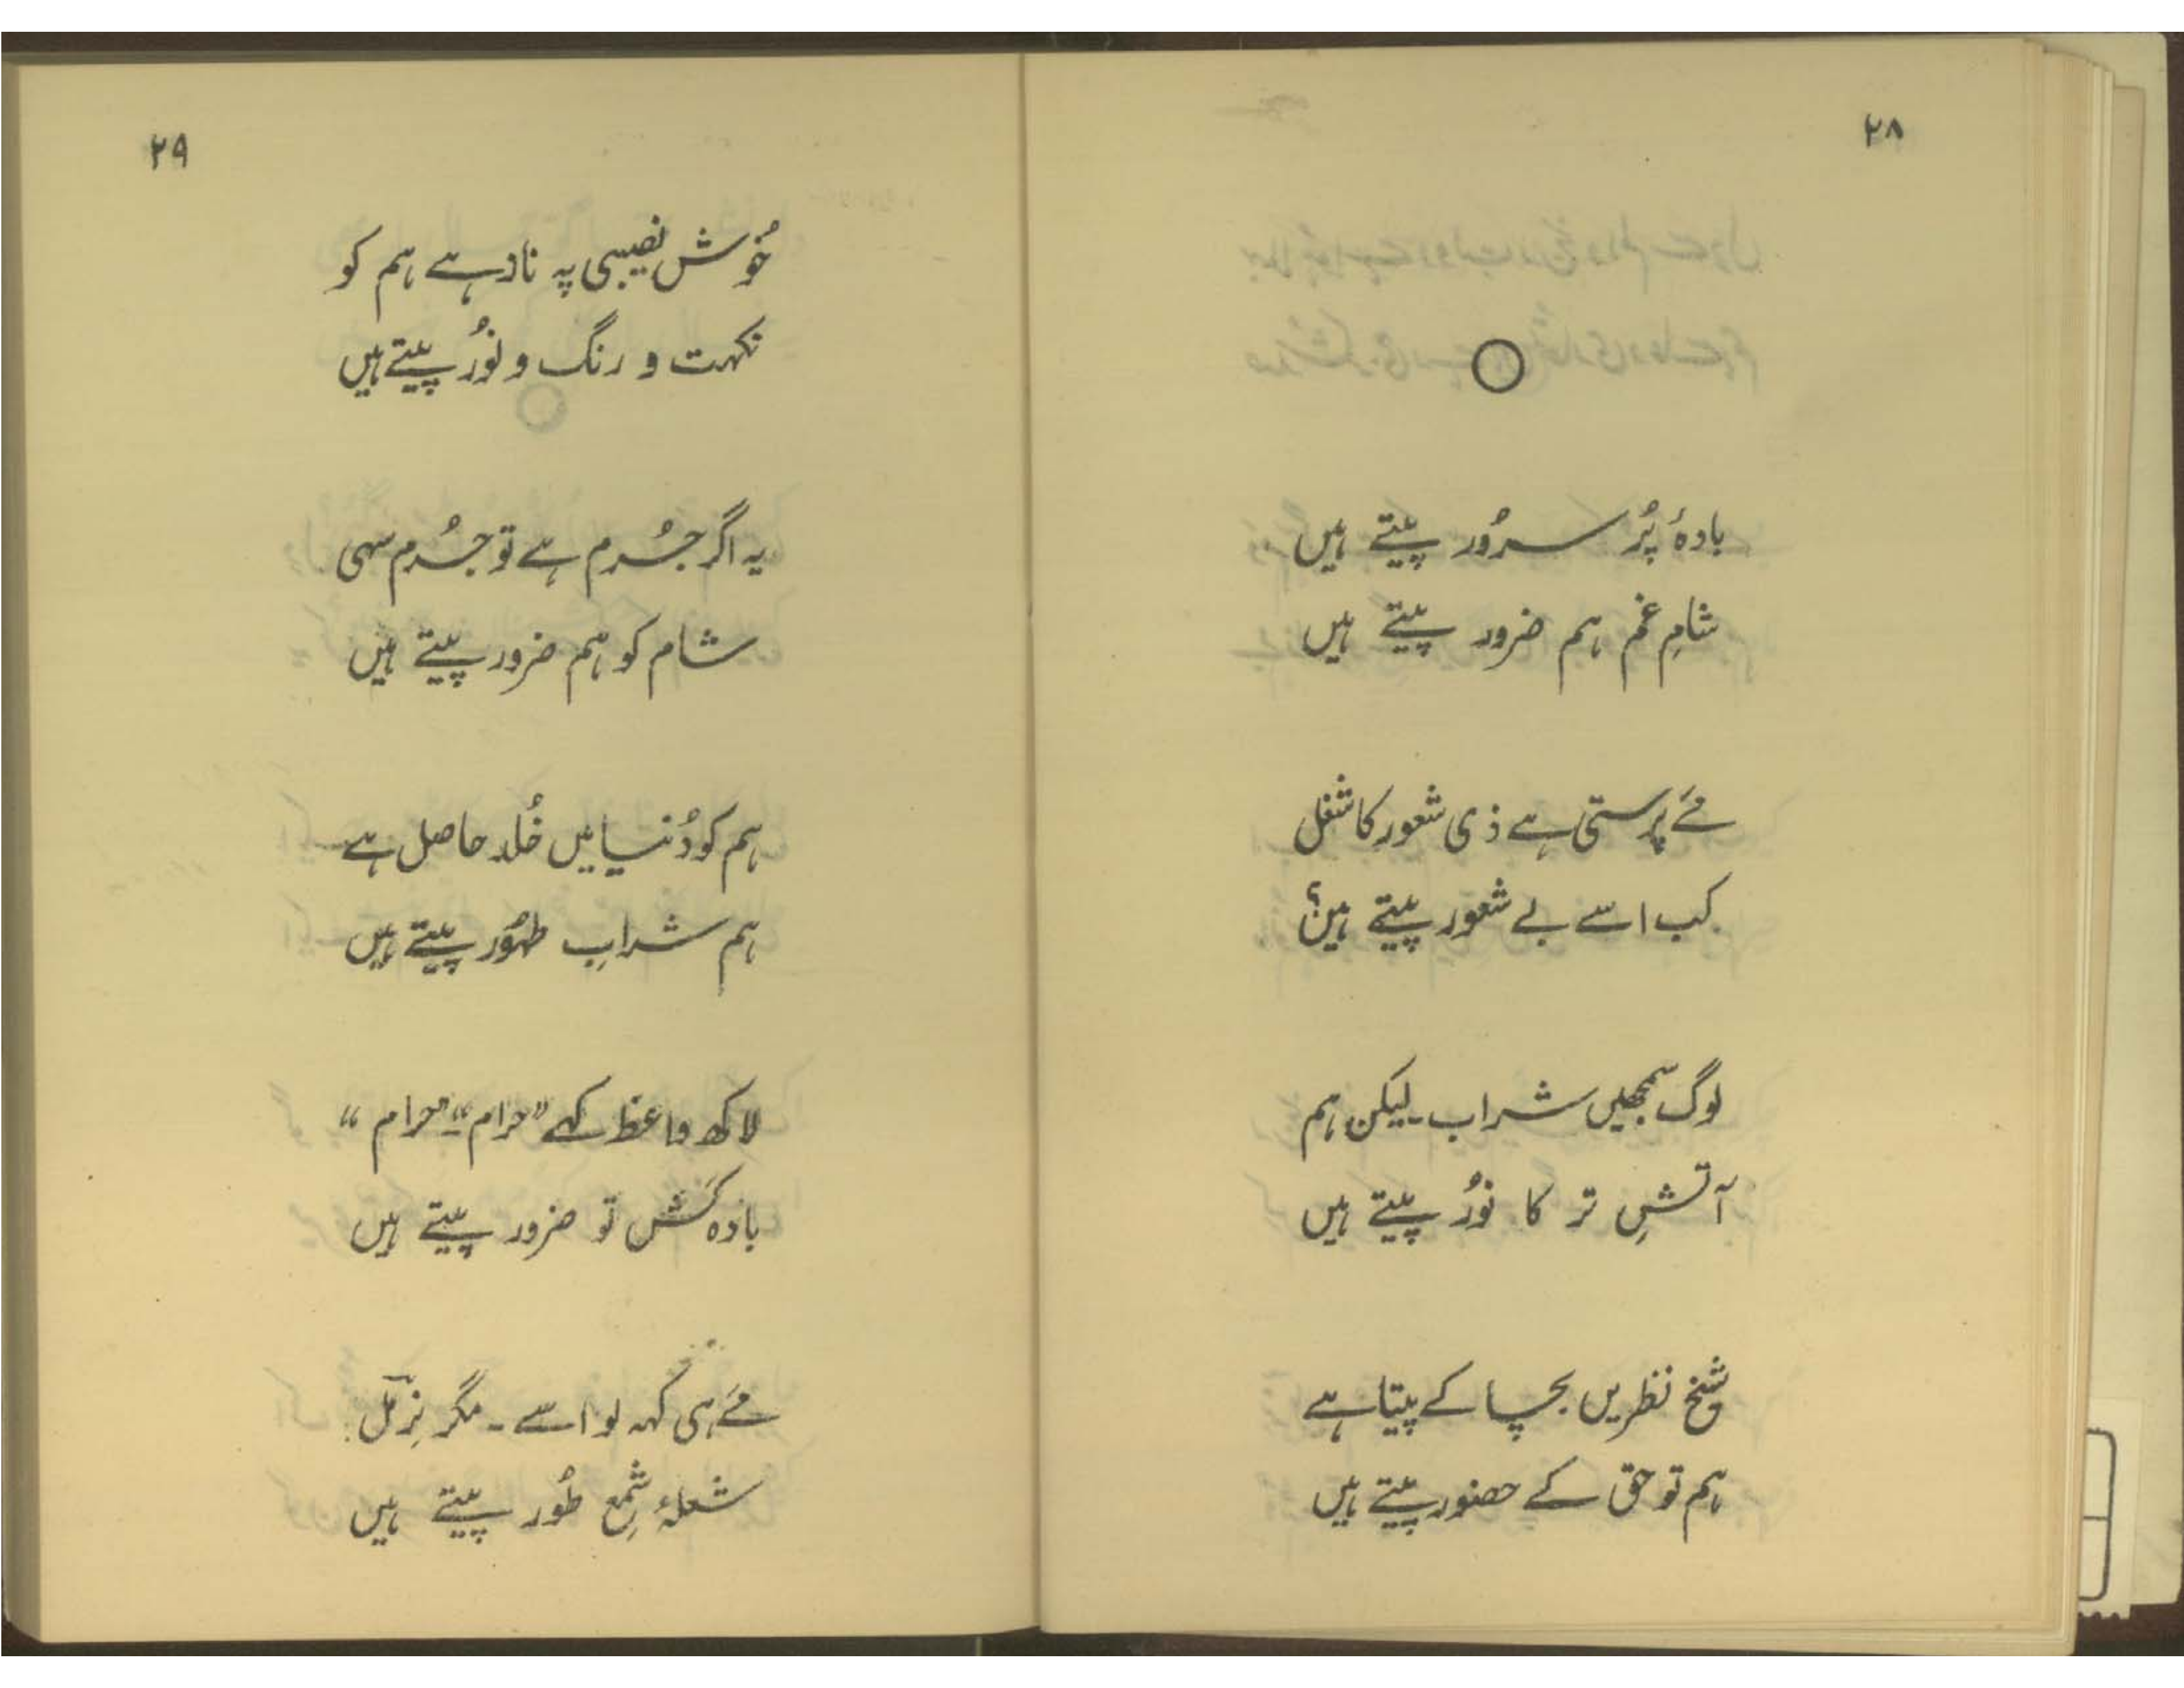 ۲۸
بادۂ پُر سرُور پیتے ہیں
شامِ غم ہم ضرور پیتے ہیں
مَے پرستی ہے ذی شعور کا شغل
کب اسے بے شعور پیتے ہیں؟
لوگ سمجھیں شراب ۔ لیکن ہم
آتشِ تر کا نُور پیتے ہیں
شیخ نظریں بچا کے پیتا ہے
ہم تو حق کے حضور پیتے ہیں
۲۹
خُوش نصیبی پہ ناز ہے ہم کو
نکہت و رنگ و نُور پیتے ہیں
یہ اگر جُرم ہے تو جُرم سہی
شام کو ہم ضرور پیتے ہیں
ہم کو دُنیا میں خُلد حاصل ہے
ہم شرابِ طہُور پیتے ہیں
لاکھ واعظ کہے "حرام" ۔ "حرام"
بادہ کَش تو ضرور پیتے ہیں
مَے ہی کہہ لو اسے ۔ مگر نِرمل
شعلۂ شمِع طُور پیتے ہیں